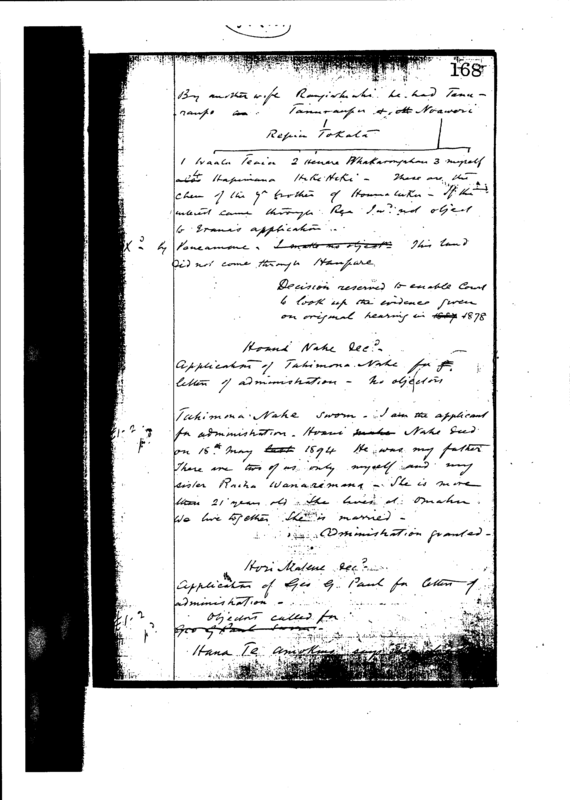 168
By another wife Rangiwhahi he had Tanu-
raupo Tanuraupo Ngawori
Repin Tokatā
1 Waata 2 Henare 3 myself
Hapimana HekeHeki - These are the
chen of the yr brother of - If the
interest came through I wd not object
to application -
Xd by - I make no objectn This land
did not come through Haupure
Decision reserved to enable Court
to look up the evidence given
on original hearing in 1878
Hoani Nahe Decd
Application of Tahimona Nahe for
letters of administration - No objectors
£1.2
pd
Tahimona Nahe sworn - I am the applicant
for administration. Hoani Nahe died
on 18th May 1894 He was my father
There are two of us only myself and my
sister Raiha Wanarimana - She is more
than 21 years old She lives at Omahu
We live together She is married -
Administration granted -
Hori Matene decd
Application of Geo G. Paul for letters of
administration -
Objectors called for
£1.2
pd
Geo G Paul Sworn
Hana Te